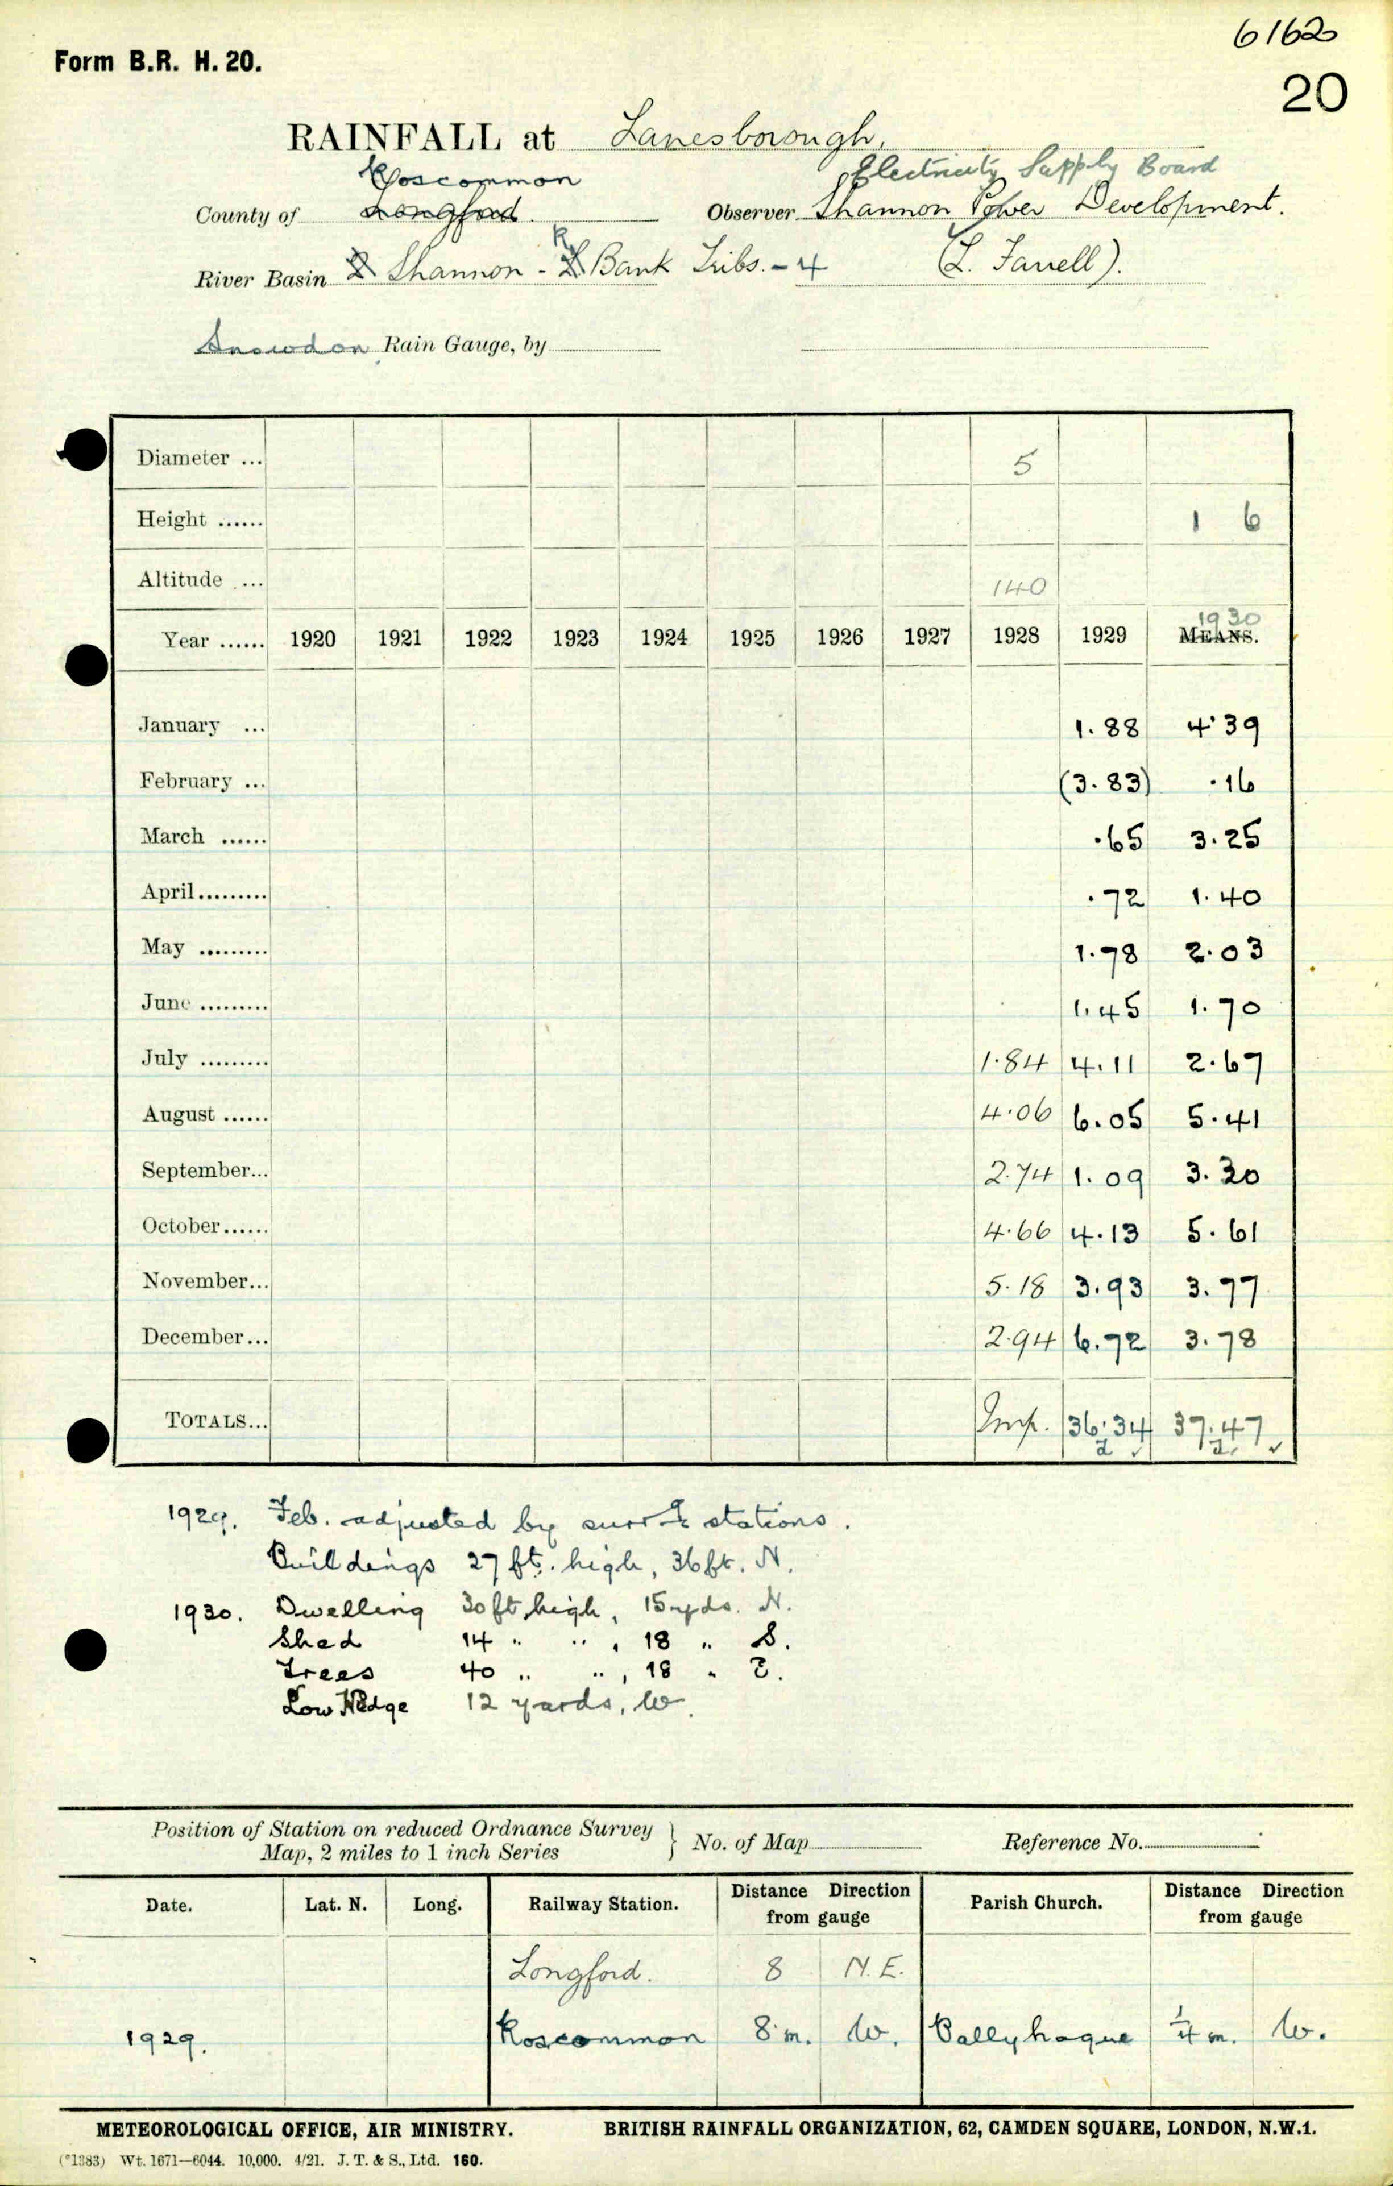 6162
Form B.R. H. 20.
20
RAINFALL at Lanesborough,
Roscommon Electricity Supply Board
County of Longford Observer Shannon Power Development.
River Basin Shannon - R Bank Tribs. - 4 (L. Farrell).
Snowdon Rain Gauge, by
Diameter ... 5
Height ...... 1 6
Altitude ... 140
1930
Year ...... 1920 1921 1922 1923 1924 1925 1926 1927 1928 1929 MEANS.
January ... 1.88 4.39
February ... (3.83) .16
March ...... .65 3.25
April......... .72 1.40
May ......... 1.78 2.03
June ......... 1.45 1.70
July ......... 1.84 4.11 2.67
August ...... 4.06 6.05 5.41
September... 2.74 1.09 3.30
October...... 4.66 4.13 5.61
November... 5.18 3.93 3.77
December... 2.94 6.72 3.78
TOTALS... Imp. 36.34 37.47
1929. Feb. adjusted by surrg stations.
Buildings 27 ft. high, 36 ft. N.
1930. Dwelling 30 ft high, 15 yds. N.
Shed 14 " " , 18 " S.
Trees 40 " " , 18 " E.
Low Hedge 12 yards, W.
Position of Station on reduced Ordnance Survey
Map, 2 miles to 1 inch Series } No. of Map Reference No.
Date. Lat. N. Long. Railway Station. Distance Direction from gauge Parish Church. Distance Direction from gauge
Longford. 8 N.E.
1929. Roscommon 8 m. W. Ballyhogue 1/4 m. W.
METEOROLOGICAL OFFICE, AIR MINISTRY. BRITISH RAINFALL ORGANIZATION, 62, CAMDEN SQUARE, LONDON, N.W.1.
(*1383) Wt. 1671—6044. 10,000. 4/21. J. T. & S., Ltd. 160.